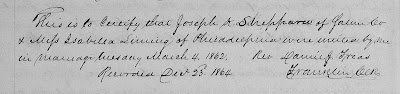 This is to Certify that Joseph D. Sheppard of Salem Co
& Miss Isabella Simms of Philadelphia were united by me
in marriage tuesday March 4. 1862. Rev Daniel J. Freas
Recorded Dect 23d 1864. Franklin Clk